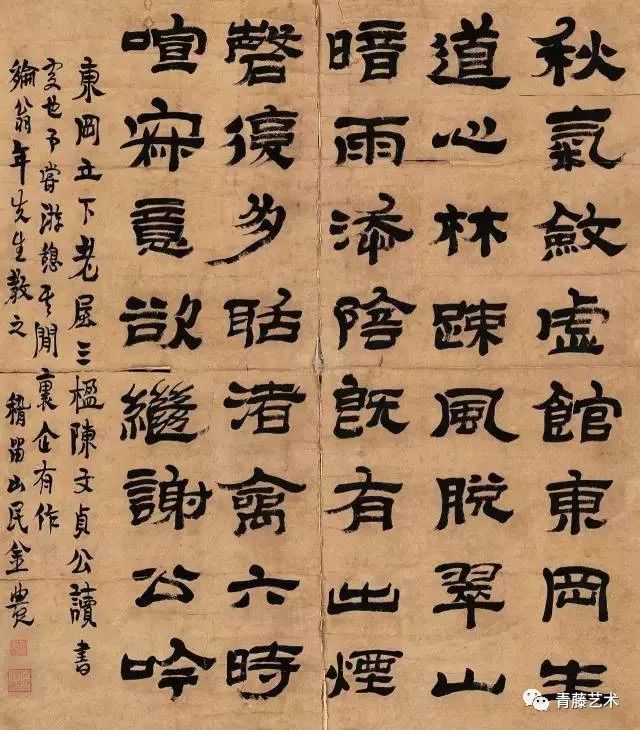 秋氣斂虛館東岡生
道心林疎風脫翠山
暗雨添陰既有出煙
磬復多聒渚禽六時
喧寂意欲繼謝公吟
東岡丘下老屋三楹陳文貞公讀書
處也予嘗游憩其間裏企有作
綸翁年先生教之 稽留山民金農
青藤艺术